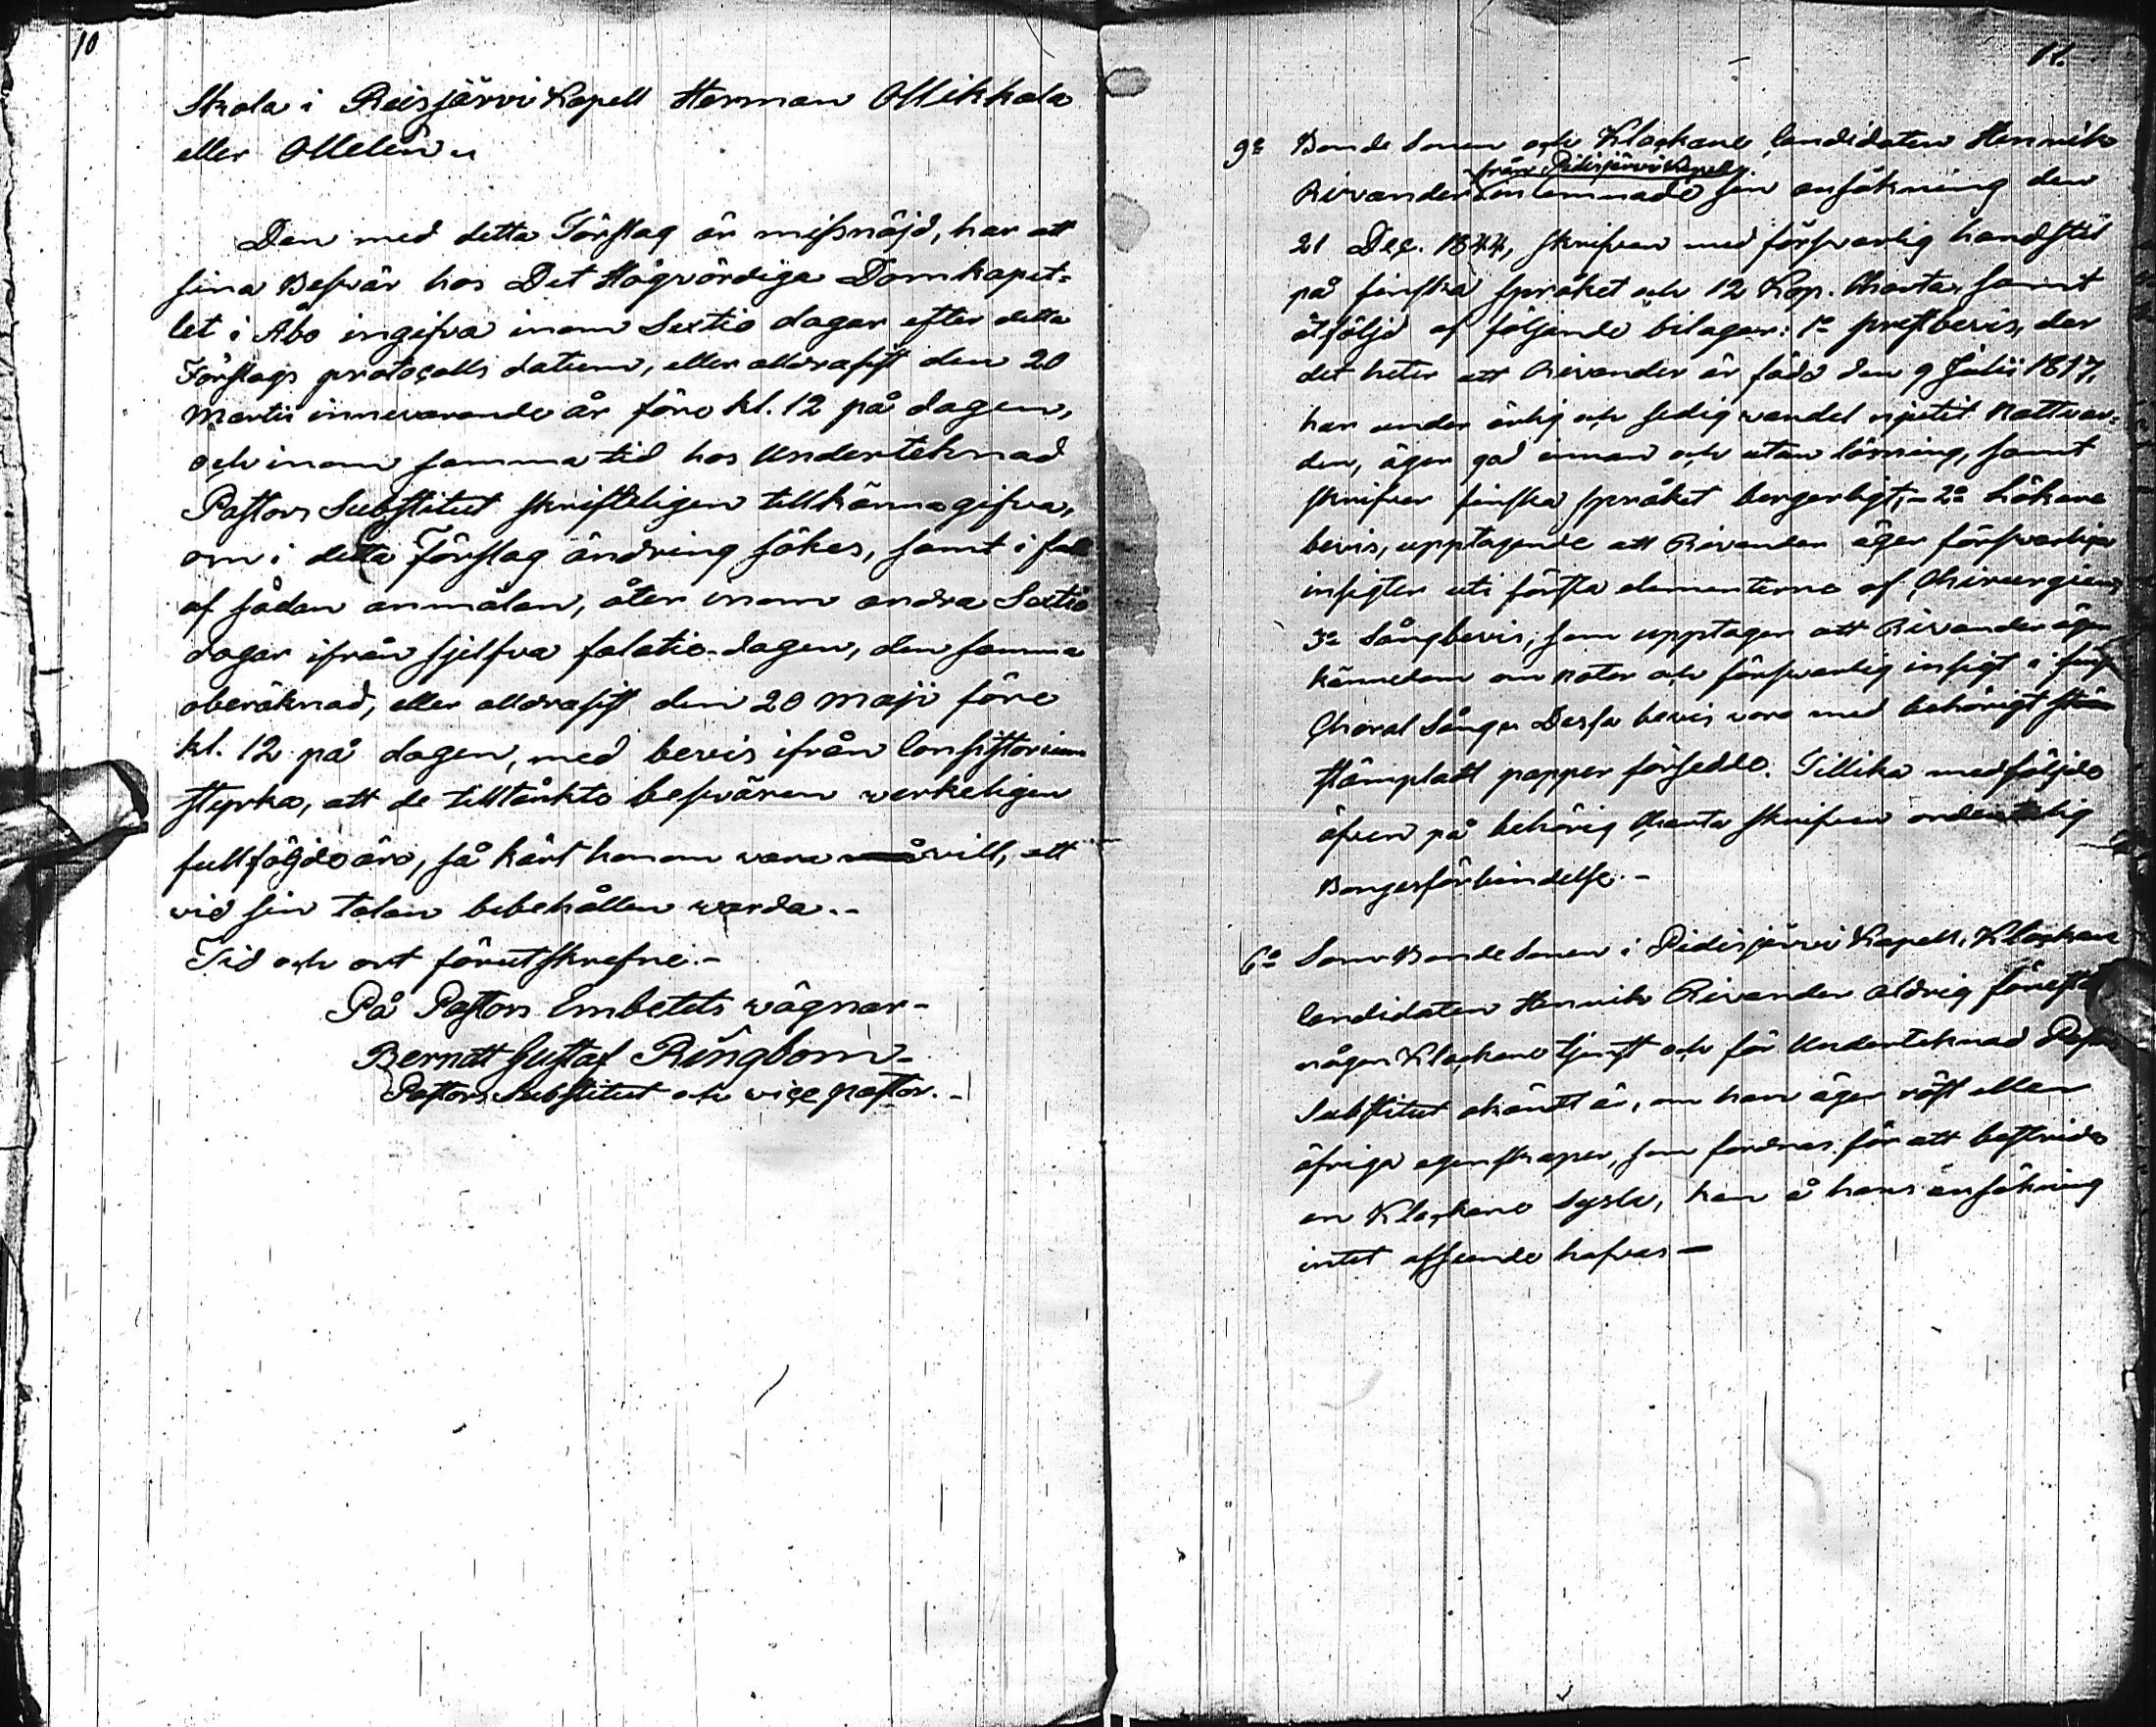 10
Skola i Reisjärvi Kapell Herman Ollikkala
eller Ollelin.
Den med detta Förslag är missnöjd, har att
sina Besvär hos Det Högvördiga Domkapit-
let i Åbo ingifva inom Sextio dagar efter detta
Förslags protocolls datum, eller alldrasist den 20
Martii innevarande år före kl. 12 på dagen,
och inom samma tid hos Undertecknad
Pastors Substitut skrifteligen tillkänna gifva,
om i detta Förslag ändring sökes, samt i fall
af sådan anmälan, åter inom andra Sextio
dagar ifrån sjelfva fatalie-dagen, den samma
oberäknad, eller alldrasist den 20 Maji före
kl. 12 på dagen, med bevis ifrån Consistorium
styrka, att de tilltänkte besvären verkeligen
fullföljde äro, så kärt honom vara vill, att
vid sin talan bibehållen warda.-
Tid och ort förutskrefne.-
På Pastors Embetets wägnar-
Berndt Gustaf Ringbom-
Pastors Substitut och vice pastor.-
11.
9o Bonde Sonen och Klockare Candidaten Henrik
från Pidisjärvi Kapell
Rivander inlemnade sin ansökning den
21 Dec. 1844, skrifven med försvarlig handstil
på finska språket och 12 Kop. Charta, samt
åtföljd af följande bilagor: 1o prestbevis, der
det heter att Rivander är född den 9 Julii 1817,
har under ärlig och sedig vandel njutit Nattvar-
den, äger god innan och utan läsning, samt
skrifver finska språket bergerligt, - 2o Läkare
bevis, upptagande att Rivander äger försvarliga
insigter uti första elementerna af Chirurgien,
3o Sångbevis, som upptager att Rivander äger
kännedom om noter och försvarlig insigt i
Choral Sång. Dessa bevis voro med behörigt
stämpladt papper försedde. Tillika medföljde
äfven på behörig Charta skrifven ordentelig
Borgesförbindelse.-
6o Som Bonde Sonen i Pidisjärvi Kapell, Klockare
Candidaten Henrik Rivander aldrig
någon Klockare tjenst och för Undertecknad
Substitut okändt är, om han äger röst eller
öfriga egenskaper, som fordras för att bestrida
en Klockare Sysla, kan å hans ansökning
intet afseende hafvas-